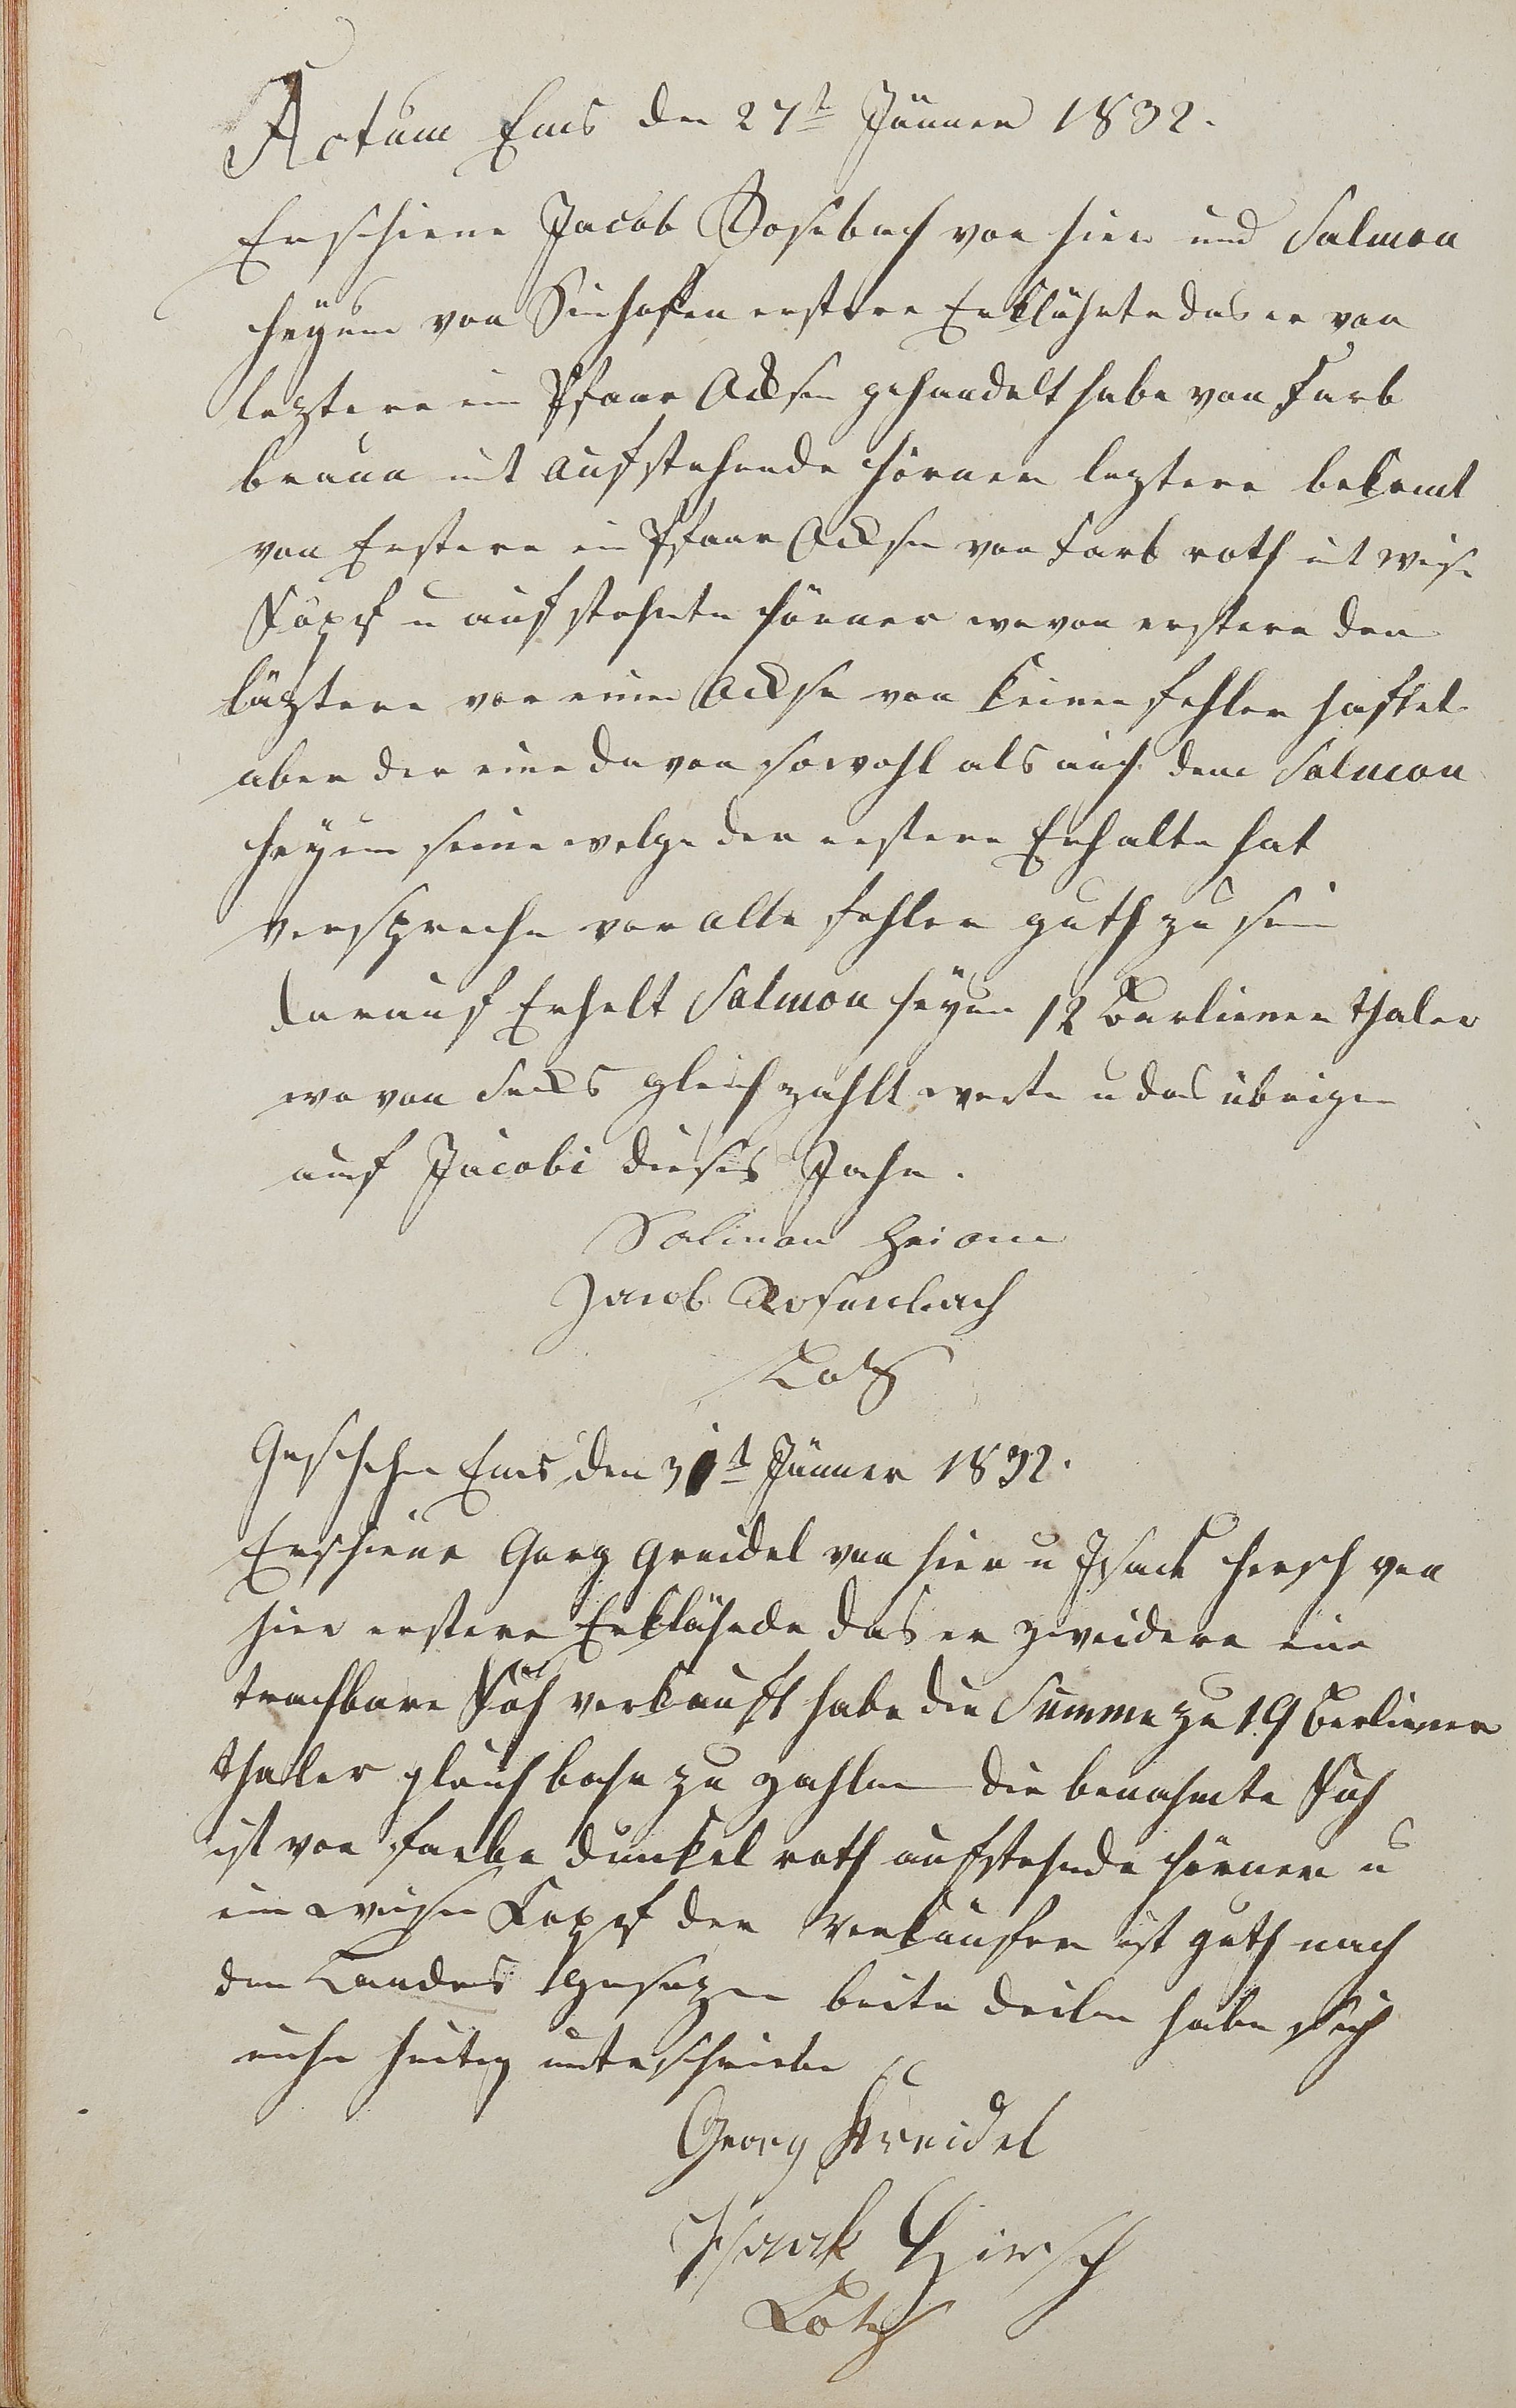 Actum Ems den 27t Jänner 1832.
Erschiene Jacob Rosebach von hier und Salmon
Heÿum von Sinhofen erstere Erklährte das er von
leztere ein Pfaar Ocksen gehandelt habe von Farb
braun mit aufstehende Hörner leztere bekomt
von Erstere ein Pfaar Ocksen von Farb roth mit weise
Köpf u aufstehnte Hörner wovon erstere den
läztere vor einen Ockse von keinen fehler haftet
aber der eine davon sowohl als auch dem Salmon
Heÿum seine welge der erstere Erhalte hat
verspreche vor alle fehler guth zu sein
darauf Erhelt Salmon Heÿum 12 Berliener thaler
wo von Secks gleich zahlt werte u das übrigen
auf Jacobi dieses Jahr.
Salmon Heiom
Jacob Rosenbach
Lotz
Geschehn Ems den 31t Jänner 1832.
Erschiene Gorg Greidel von hier u Isack Hersch von
hier erstere Erklährde das er zweidere eine
trachbare Köh verkauft habe die Summe zu 19 Berliener
thaler gleich bahr zu zahlen die benahmte Kuh
ist von farbe dunkel roth aufstehnde Hörner u
ein weisen Kopf der Verkäufer ist guth nach
den Landes Gesezen beite deilen habe sich
eigenhäntig unterschriebe
Georg Kreidel
Isaak Hirsch
Lotz